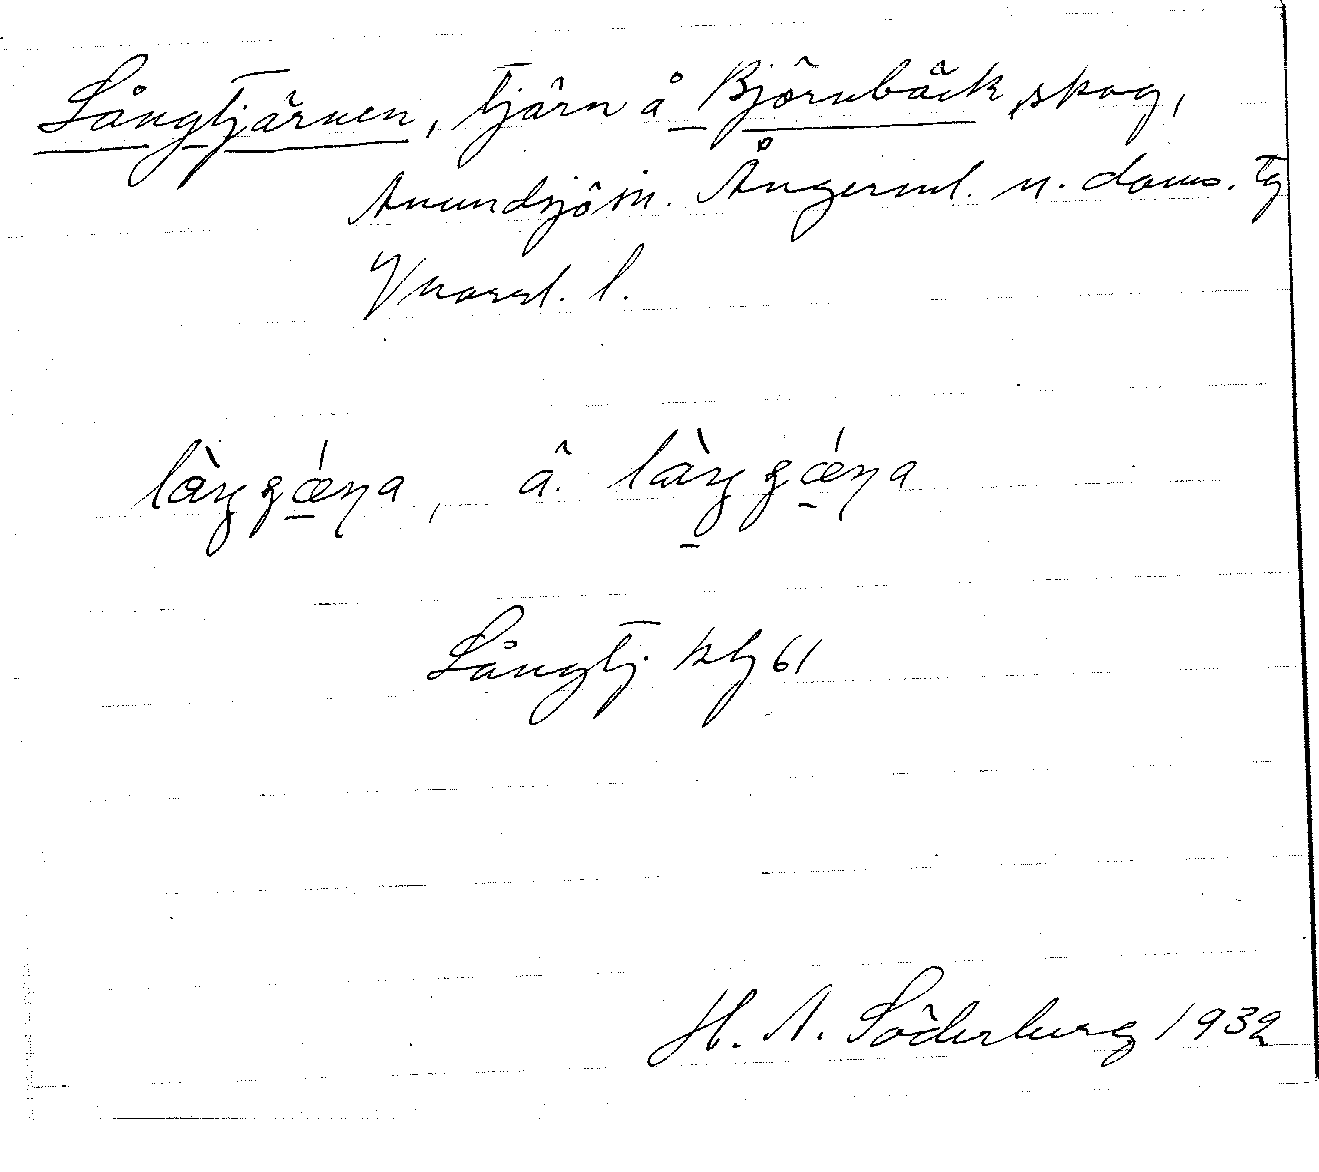 Långtjärnen, tjärn å Björnbäck skog,
Anundsjö sn. Ångerml. n. doms. tg
Vnorrl. l.
làŋgǽɳa, å. làŋgǽɳa
Långtj. kbl 61
H. A. Söderberg 1932